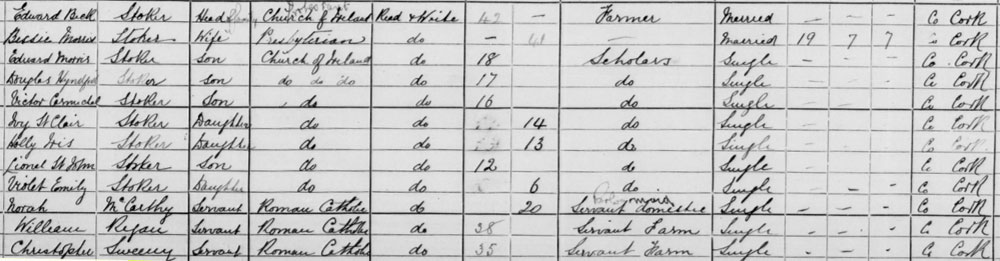 Edward Beck Stoker Head Church of Ireland Read & Write 42 — Farmer Married — — — Co Cork
Bessie Morris Stoker Wife Presbyterian do — 41 — Married 19 7 7 Co Cork
Edward Morris Stoker Son Church of Ireland do 18 Scholars Single — — — Co Cork
Douglas Stoker Son do do do do 17 do Single — — — Co Cork
Victor Carmichel Stoker Son do do 16 do Single — — — Co Cork
Ivy St Clair Stoker Daughter do do 14 do Single — — — Co Cork
Holly Iris Stoker Daughter do do 13 do Single — — — Co Cork
Lionel St John Stoker Son do do 12 do Single — — — Co Cork
Violet Emily Stoker Daughter do do 6 do Single — — — Co Cork
Norah McCarthy Servant Roman Catholic do 20 Servant domestic Single — — — Co Cork
William Ryan Servant Roman Catholic do 38 Servant Farm Single — — — Co Cork
Christopher Sweeny Servant Roman Catholic do 35 Servant Farm Single — — — Co Cork